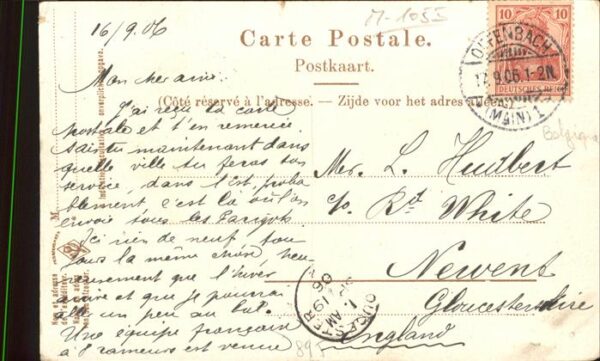 M-1055
16/9.06
Carte Postale.
Postkaart.
(Côté réservé à l'adresse. — Zijde voor het adres
10 10
DEUTSCHES REICH
OFFENBACH
17.9.06.1-2N.
(MAIN) 1
Mon cher ami.
J'ai reçu ta carte
postale et t'en remercie
sais tu maintenant dans
quelle ville tu feras ton
service, dans l'Est, proba-
blement c'est là où l'on
envoie tous les Parigots
Ici rien de neuf tou-
jours la même chose, heu-
reusement que l'hiver
arrive et que je pourrai
aller un peu au bal.
Une équipe française
à 8 rameurs est venue
Mr. L. Hudbert
c/o Rd White
Newent
Gloucestershire
England
GLOUCESTER
1 AM
SP 19
06
895